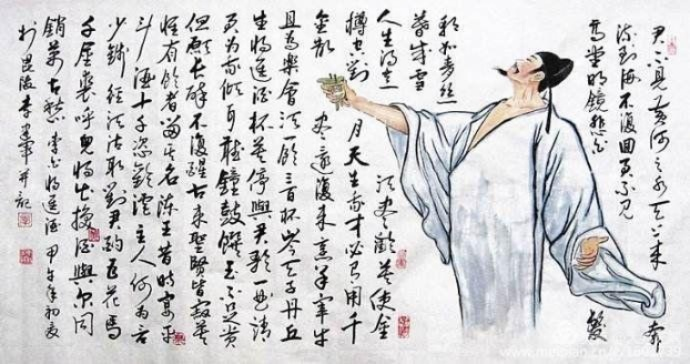 君不見黃河之水天上來奔
流到海不復回君不見
高堂明鏡悲白髮
朝如青絲
暮成雪
人生得意須盡歡莫使金
樽空對月天生我才必有用千
金散盡還復來烹羊宰牛
且為樂會須一飲三百杯岑夫子丹丘
生將進酒杯莫停與君歌一曲請
君為我傾耳聽鐘鼓饌玉不足貴
但願長醉不復醒古來聖賢皆寂莫
惟有飲者留其名陳王昔時宴平
斗酒十千恣歡謔主人何為言
少錢徑須沽取對君酌五花馬
千金裘呼兒將出換酒與爾同
銷萬古愁 李白將進酒 甲午年初夏
於毘陵李建軍并記